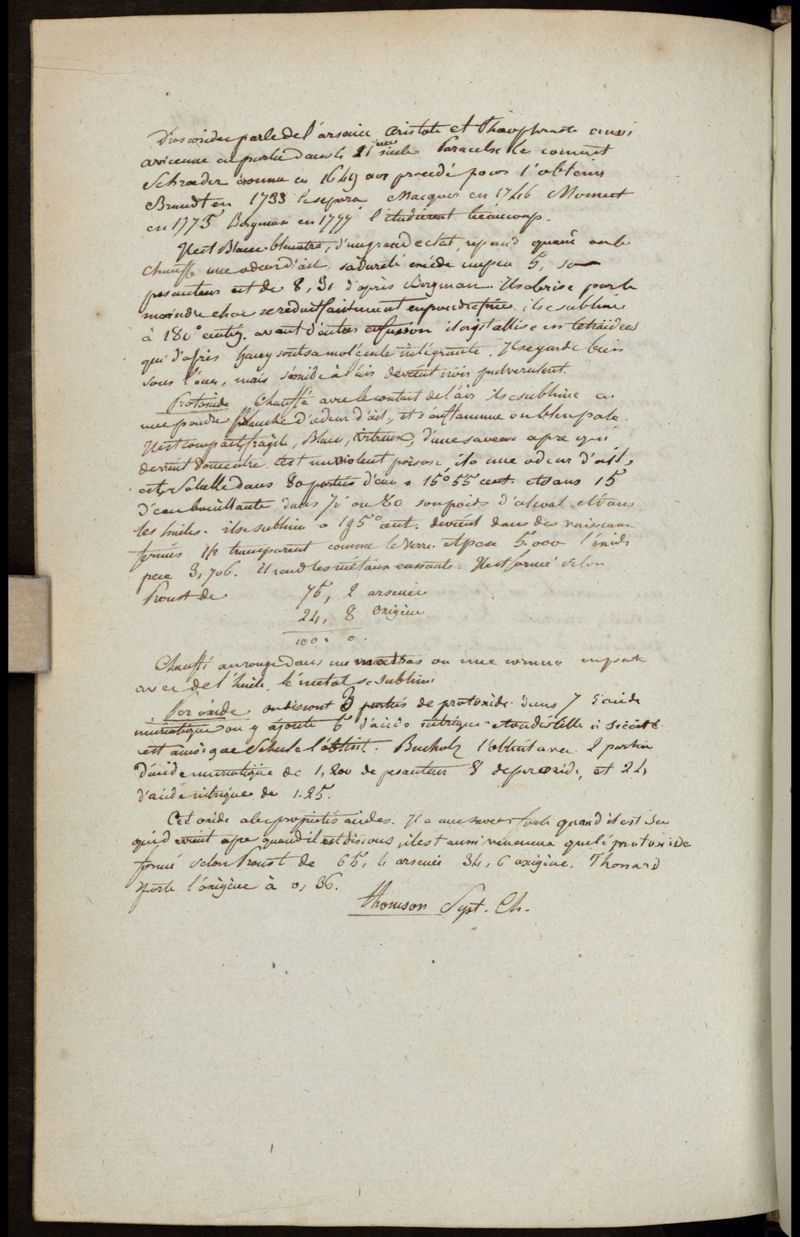 Dioscoride parle de l'arsenic Aristote et Théophraste aussi
avicenne en parle dans le 21me siecle Paracelse le connut
Schroeder donna en 1649 un procédé pour l'obtenir
Brandt en 1733 l'espera Macquer en 1746 Monnet
en 1773 Bergman en 1777 l'etudierent beaucoup.
Il est Blanc bleuatre, d'un grand eclat, repand quand on le
chauffe une odeur d'ail, sa dureté excéde un peu 5, sa
pesanteur est de 8, 31 d'après Bergman. Il se brise par le
moindre choc se reduit faciment en poudre fine, il se sublime
à 180° centig. avant d'entrer en fusion il cristallise en tetraèdres
qui d'après hauy sont sa molécule intégrante. Il se garde bien
sous l'eau, mais s'oxide à l'air devient noir pulverulent.
Protoxide Chauffé avec le contact de l'air il se sublime en
une poudre Blanche d'odeur d'ail, et s'enflamme en bleu pale.
Il est compact, fragile, Blanc, vitreux, d'une saveur apre qui
devient douceatre. C'est un violent poison, il a une odeur d'ail,
est soluble dans 80 parties d'eau a 15° 55 cent. et dans 15
d'eau bouillante dans 70 ou 80 son poids d'alcool et dans
les huiles. il se sublime a 195° cent. devient dans des vaisseaux
fermés transparent comme le verre. et pese 5.000 l'oxide
pese 3,706. Il rend les métaux cassants. Il est formé selon
Proust de 75, 2 arsenic
24, 8 oxigène
100. 0.
Chauffé au rouge dans un matras ou une cornue
avec de l'huile, le métal se sublime
Per oxide on dissout 3 parties de protoxide dans 7 d'acide
muriatique on y ajoute 5 d'acide nitrique et on distille à siccité
c'est ainsi que Schéele l'obtint. Bucholz l'obtint avec 2 parties
d'acide muriatique de 1,200 de pesanteur 8 de protoxide, et 24
d'acide nitrique de 1.25.
Cet oxide a les propriétés acides. Il a une saveur forte quand il est sec
qui devient apre quand il est dissous, il est aussi veneneux que le protoxide
formé selon Proust de 65, 4 arsenic 34, 6 oxigène. Thenard
porte l'oxigène à 0, 36.
Thomson Syst. Ch.